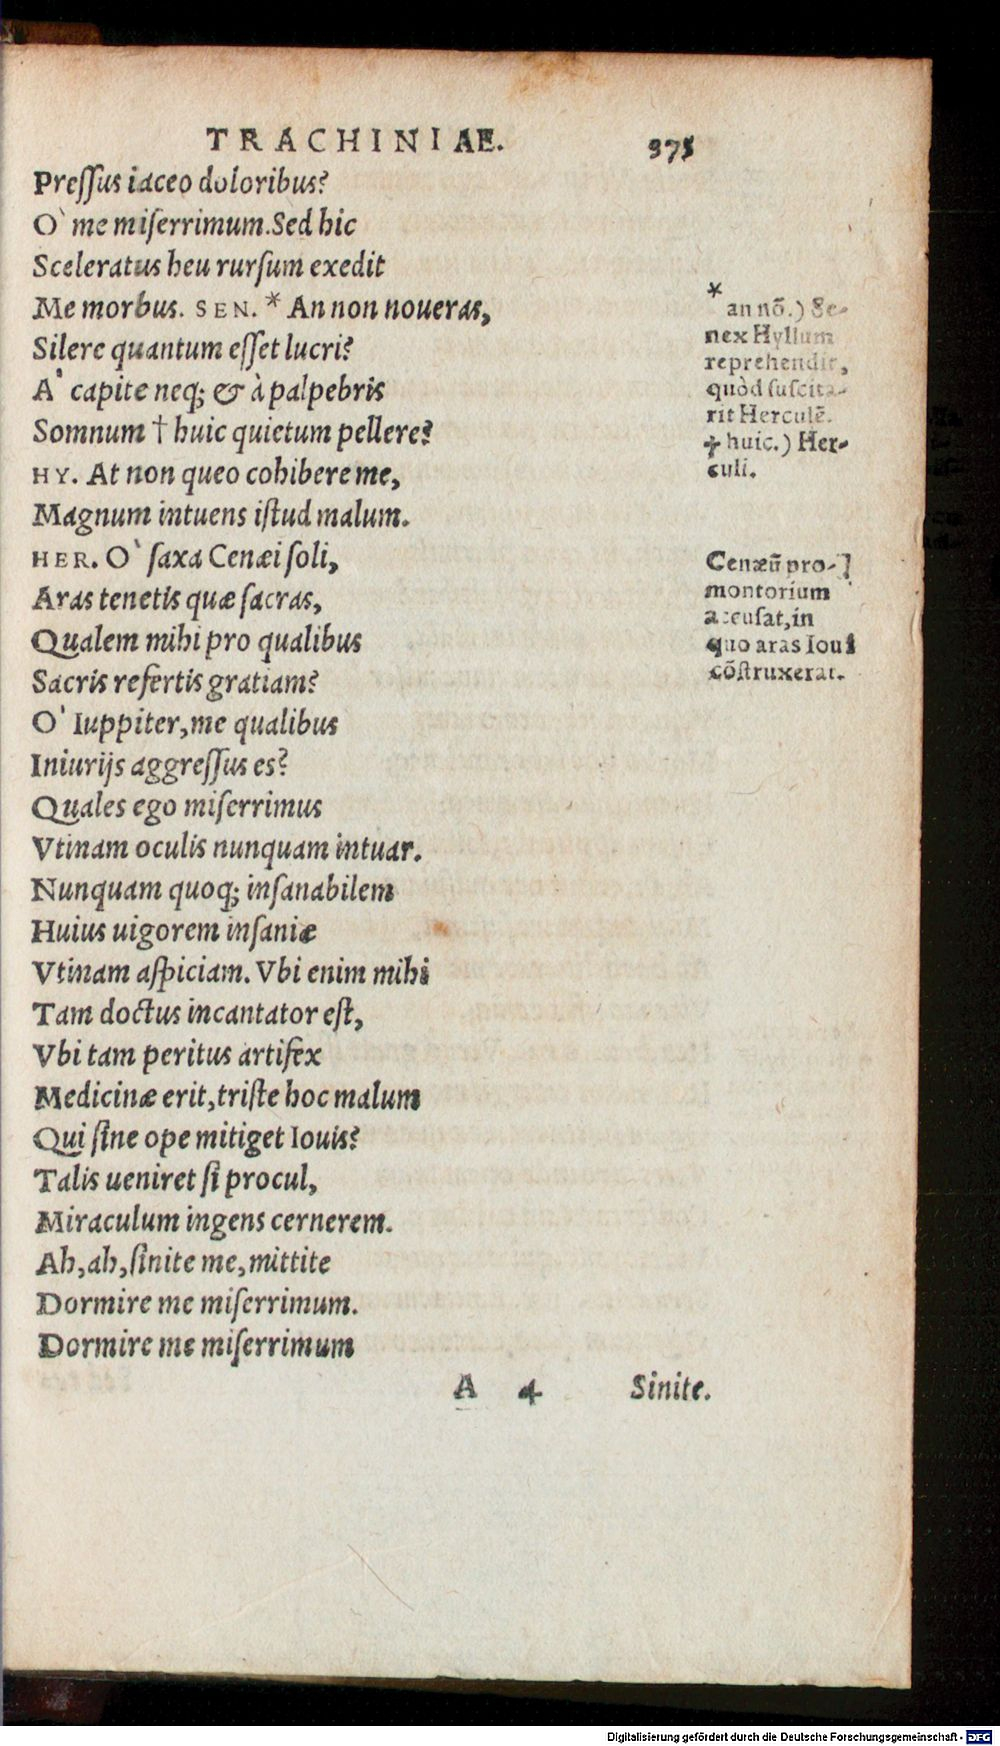 TRACHINIAE. 375
Preſſus iaceo doloribus?
O` me miſerrimum. Sed hic
Sceleratus heu rurſum exedit
Me morbus. SEN. * An non noueras,
Silere quantum eſſet lucri?
A` capite neq; & à palpebris
Somnum † huic quietum pellere?
HY. At non queo cohibere me,
Magnum intuens iſtud malum.
HER. O` ſaxa Cenæi ſoli,
Aras tenetis quæ ſacras,
Qualem mihi pro qualibus
Sacris refertis gratiam?
O` Iuppiter, me qualibus
Iniurijs aggreſſus es?
Quales ego miſerrimus
Vtinam oculis nunquam intuar.
Nunquam quoq; inſanabilem
Huius uigorem inſaniæ
Vtinam aſpiciam. Vbi enim mihi
Tam doctus incantator eſt,
Vbi tam peritus artifex
Medicinæ erit, triſte hoc malum
Qui ſine ope mitiget Iouis?
Talis ueniret ſi procul,
Miraculum ingens cernerem.
Ah, ah, ſinite me, mittite
Dormire me miſerrimum.
Dormire me miſerrimum
A 4 Sinite.
*
an nō.) Se-
nex Hyllum
reprehendit,
quòd ſuſcita-
rit Herculē.
† huic.) Her-
culi.
Cenæū pro-]
montorium
accuſat, in
quo aras Ioui
cōſtruxerat.
Digitalisierung gefördert durch die Deutsche Forschungsgemeinschaft - DFG